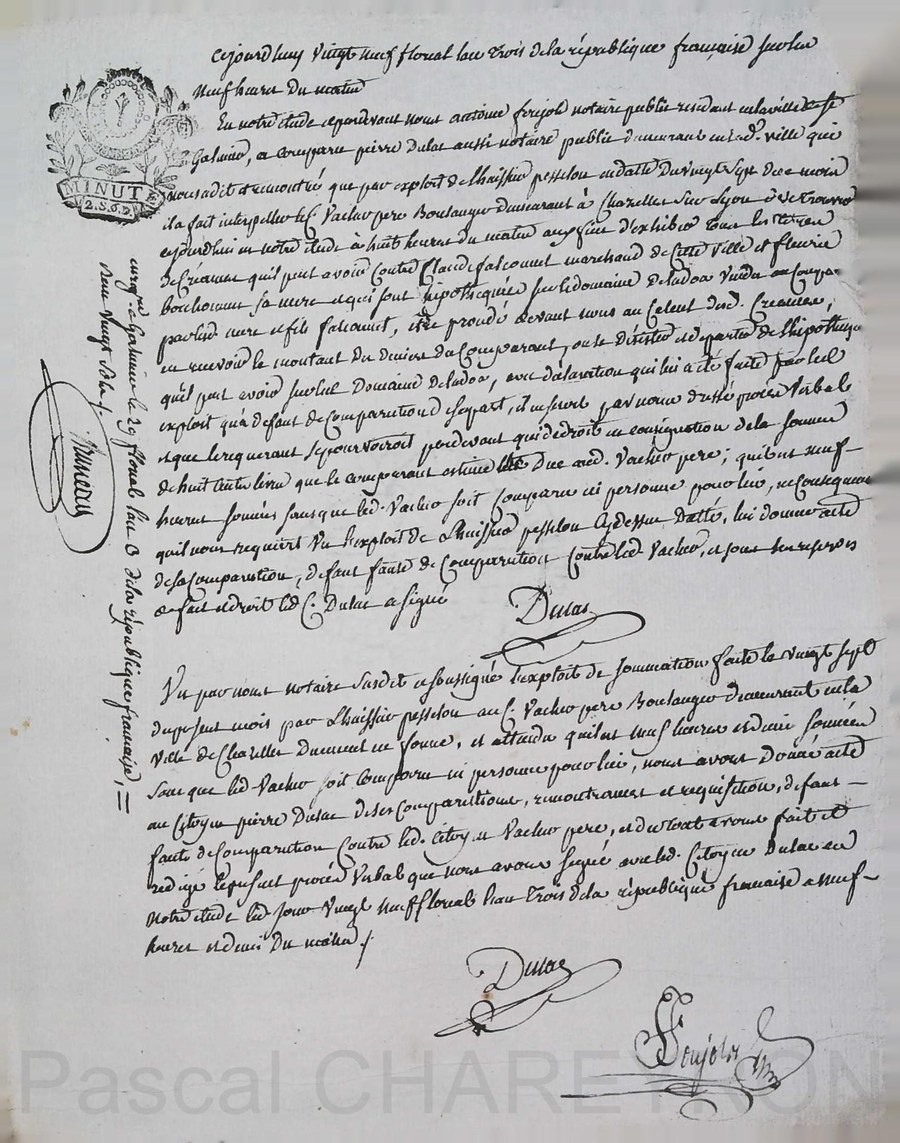 cejourdhuy vingt neuf floreal lan trois de la république française sur les
neuf heures du matin
En notre étude et pardevant nous antoine foujols notaire public residant en la ville de st
Galmier, a comparu pierre Dulac aussi notaire public demeurant en lad. ville qui
nous a dit et remontré que par exploit de Lhuissier pesselon en datte du vingt sept de ce mois
il a fait interpeller le C. Vacher pere Boulanger demeurant à Chazelles sur Lyon de se trouver
cejourdhui en notre étude à huit heures du matin aux fins d'exhiber tous les titres
de Créances qu'il peut avoir Contre Claude falconnet marchand de Cette Ville et fleurie
bonhomme sa mere et qui sont hipothequés sur le domaine de vendu au Compa-
par lesd. mere et fils falconnet, procedé devant nous au Calcul desd. Creances,
en recevoir le montant des deniers du Comparant, ou se désister et départir de L'hipotheque
qu'il peut avoir sur led. Domaine avec déclaration qui lui a été faite par led.
exploit qu'à défaut de Comparution de sa part, il en seroit par nous dressé procès Verbal
et que le requerant se pourvoiroit pardevant qui de droit en Consignation de la somme
de huit Cents livres que le comparant estime être Due aud. Vacher pere; qu'étant neuf-
heures sonnées sans que led. Vacher soit Comparu ni personne pour lui, en consequence
qu'il nous requiert Vu L'exploit de Lhuissier pesselon Cydessus Datté, lui donner acte
de sa Comparution, défaut faute de Comparution Contre led. Vacher, et sous les reserves
de fait et droit led. C. Dulac a signé
Dulac
Vu par nous notaire susdit et soussigné L'exploit de sommation faite le vingt sept
du present mois par Lhuissier pesselon au C. Vacher pere Boulanger demeurant en la
Ville de Chazelles Duement en forme, et attendu qu'il est neuf heures et demie sonnées
sans que led. Vacher soit Comparu ni personne pour lui, nous avons Donné acte
au Citoyen pierre Dulac de ses Comparutions, remontrances et requisition, défaut-
faute de Comparution Contre led. Citoyen Vacher pere, et du tout avons fait et
redigé le present procès Verbal que nous avons signé avec led. Citoyen Dulac en
notre étude led. jour Vingt neuf floreal lan Trois de la république française a neuf-
heures et demi Du matin ./.
Dulac
Foujols
MINUTE
2.S.6.D
enreg. à Galmier le 29 floreal lan 3 de la république française,
reçu vingt sols
Pascal CHAREYRON